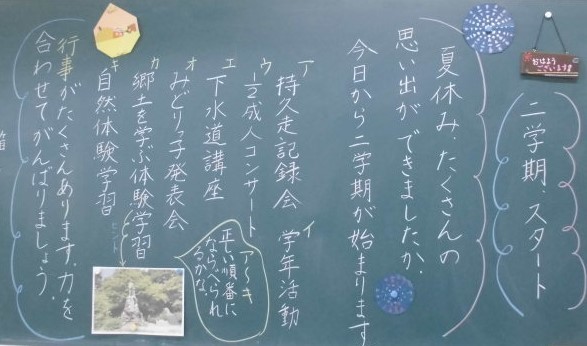 おはよう
ございます
二学期、スタート
夏休み、たくさんの
思い出ができましたか。
今日から二学期が始まります
ア 持久走記録会 イ 学年活動
ウ 1/2成人コンサート
エ 下水道講座
オ みどりっ子発表会
カ 郷土を学ぶ体験学習
キ 自然体験学習
ア〜キ
正しい順番に
ならべられ
るかな。
ヒント
行事がたくさんあります。力を
合わせてがんばりましょう。